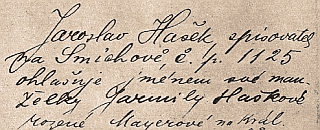 Jaroslav Hašek spisovatel
na Smíchově, č. p. 1125
ohlašuje jménem své man
želky Jarmily Haškové
rozené Mayerové na Král.